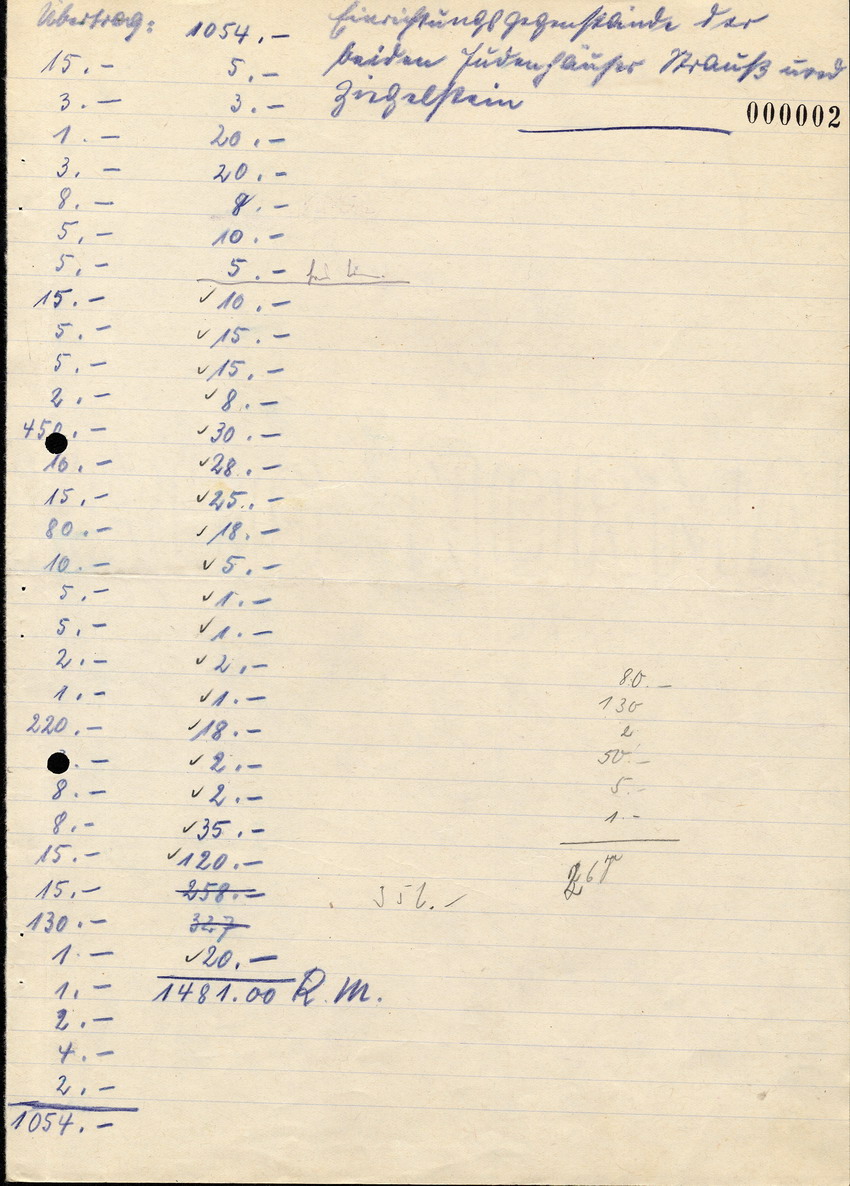 Übertrag:
15.-
3.-
1.-
3.-
8.-
5.-
5.-
15.-
5.-
5.-
2.-
450.-
10.-
15.-
80.-
10.-
5.-
5.-
2.-
1.-
220.-
.-
8.-
8.-
15.-
15.-
130.-
1.-
1.-
2.-
4.-
2.-
1054.-
1054.-
5.-
3.-
20.-
20.-
8.-
10.-
5.-
✓10.-
✓15.-
✓15.-
✓8.-
✓30.-
✓28.-
✓25.-
✓18.-
✓5.-
✓1.-
✓1.-
✓2.-
✓1.-
✓18.-
✓2.-
✓2.-
✓35.-
✓120.-
258.-
327
✓20.-
1481.00 R.M.
Einrichtungsgegenstände der
beiden Judenhäuser Strauß und
Ziegelstein
000002
80.-
130
2
50.-
5.-
1.-